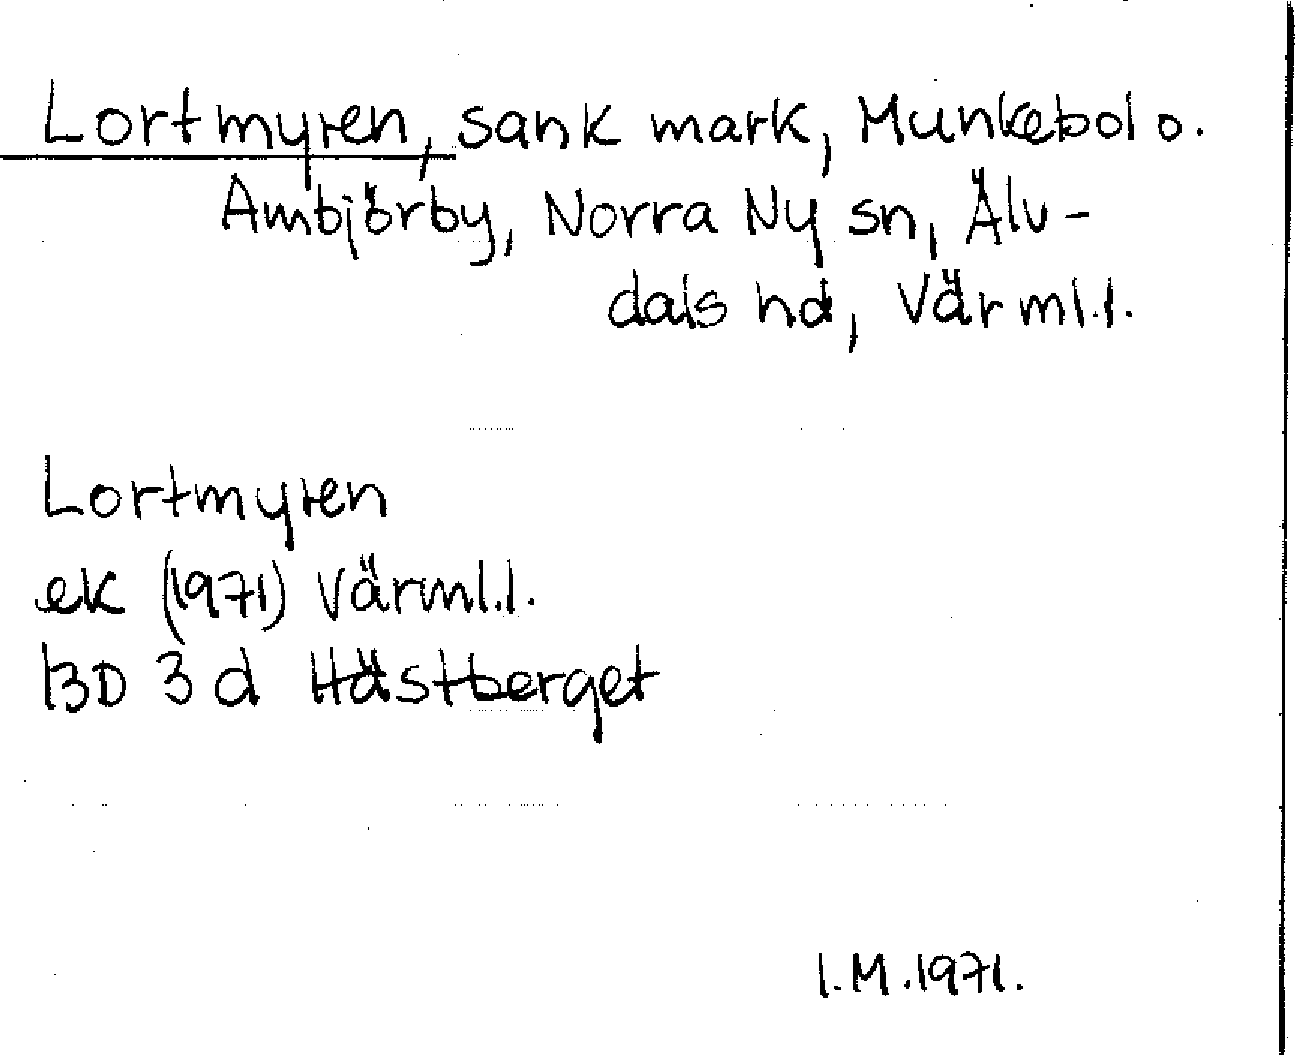 Lortmyren, sank mark, Munkebol o.
Ambjörby, Norra Ny sn, Älv-
dals hd, Värml.l.
Lortmyren
ek (1971) Värml.l.
BD 3 d Hästberget
I.M.1971.